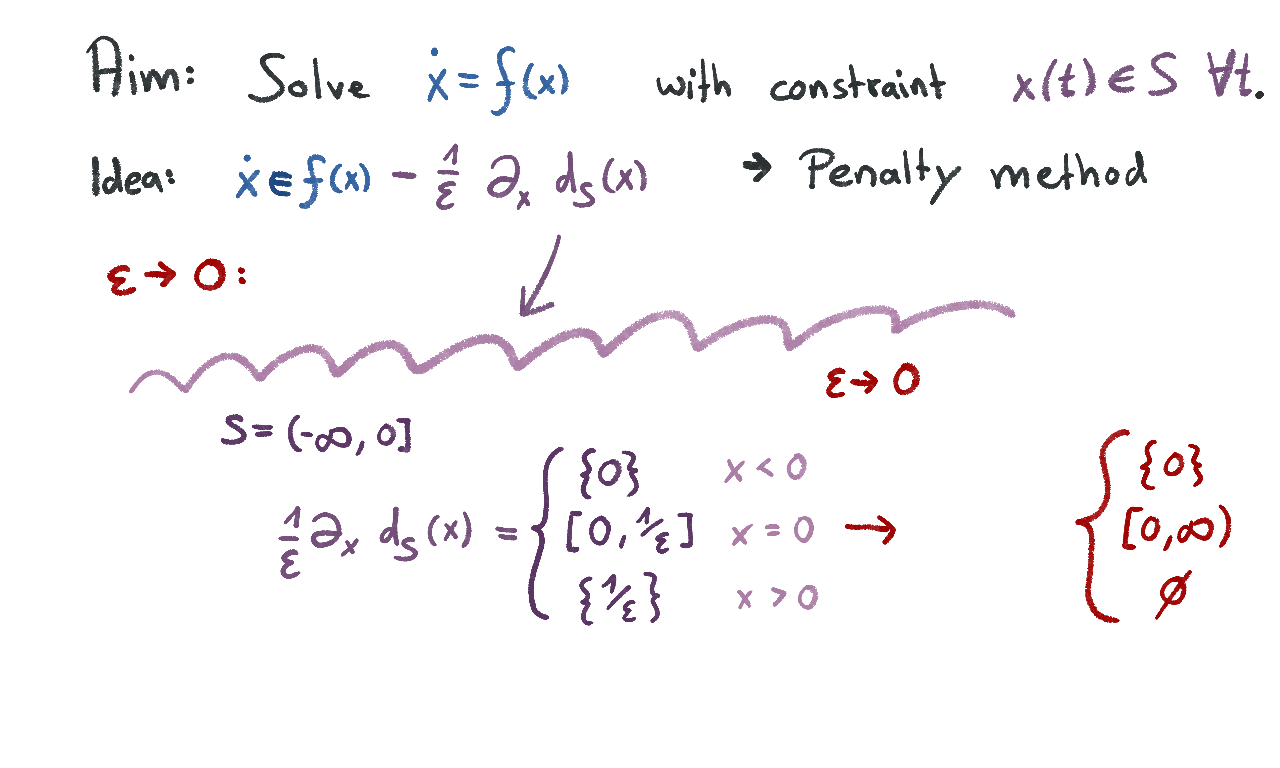 Aim: Solve ẋ = f(x) with constraint x(t) ∈ S ∀t.
Idea: ẋ ∈ f(x) - 1/ε ∂ₓ d_S(x) → Penalty method
ε → 0:
ε → 0
S = (-∞, 0]
{0} x < 0 {0}
1/ε ∂ₓ d_S(x) = { [0, 1/ε] x = 0 → { [0, ∞)
{1/ε} x > 0 ∅